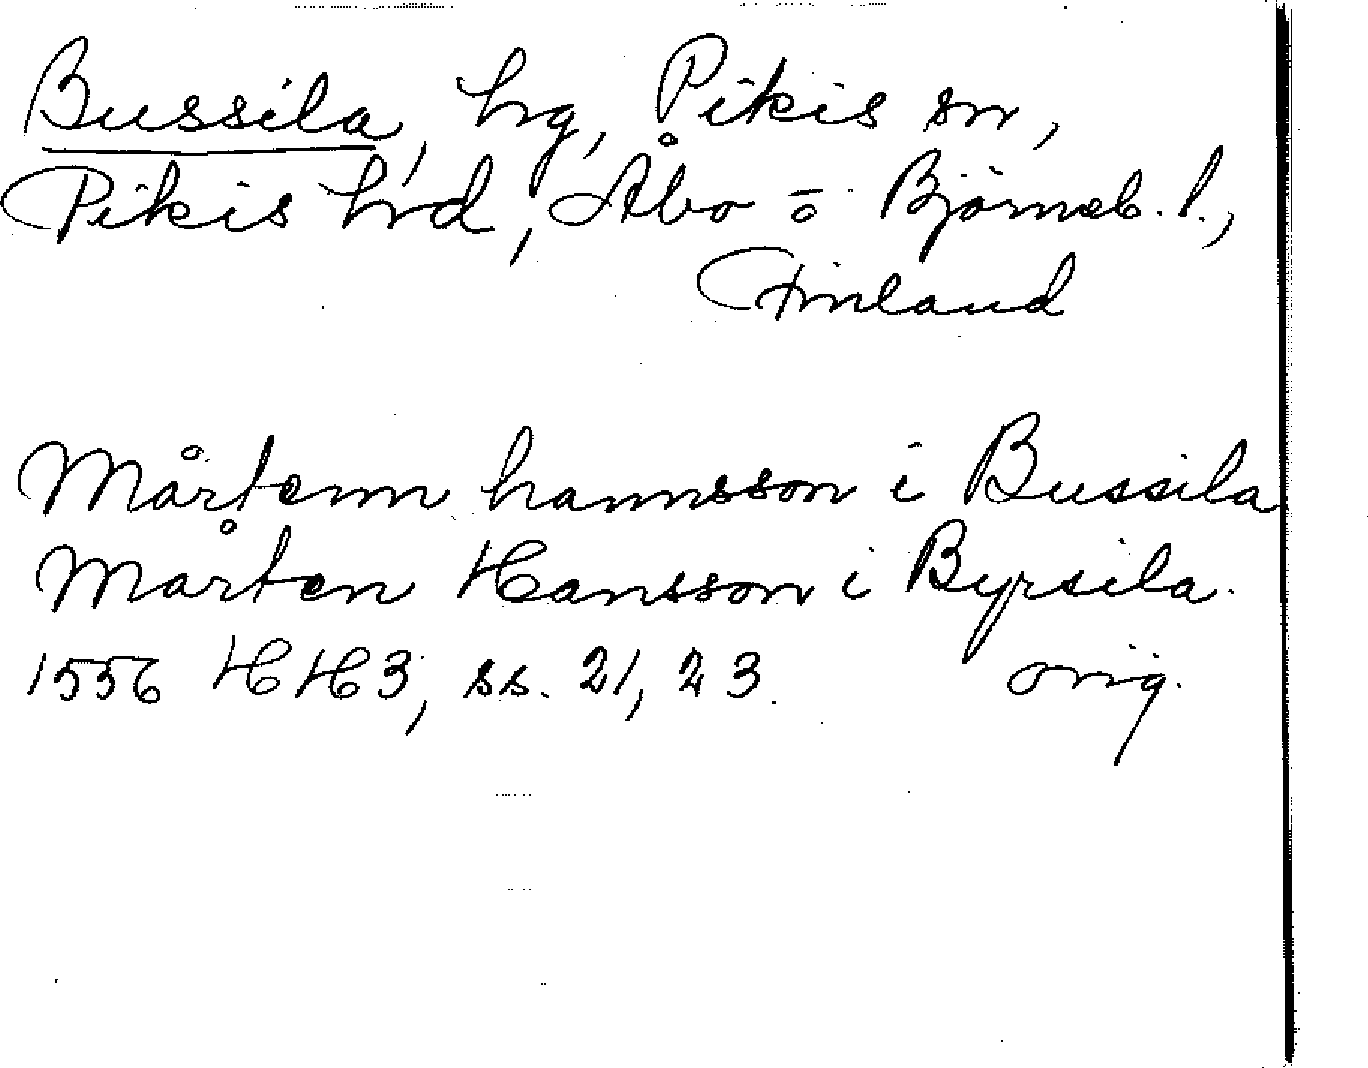 Bussila, hg, Pikis sn,
Pikis hrd, Åbo o Björneb. l.,
Finland
Mårtenn hannsson i Bussila
Mårten Hansson i Byrsila.
1556 HH3, ss. 21, 23. orig.